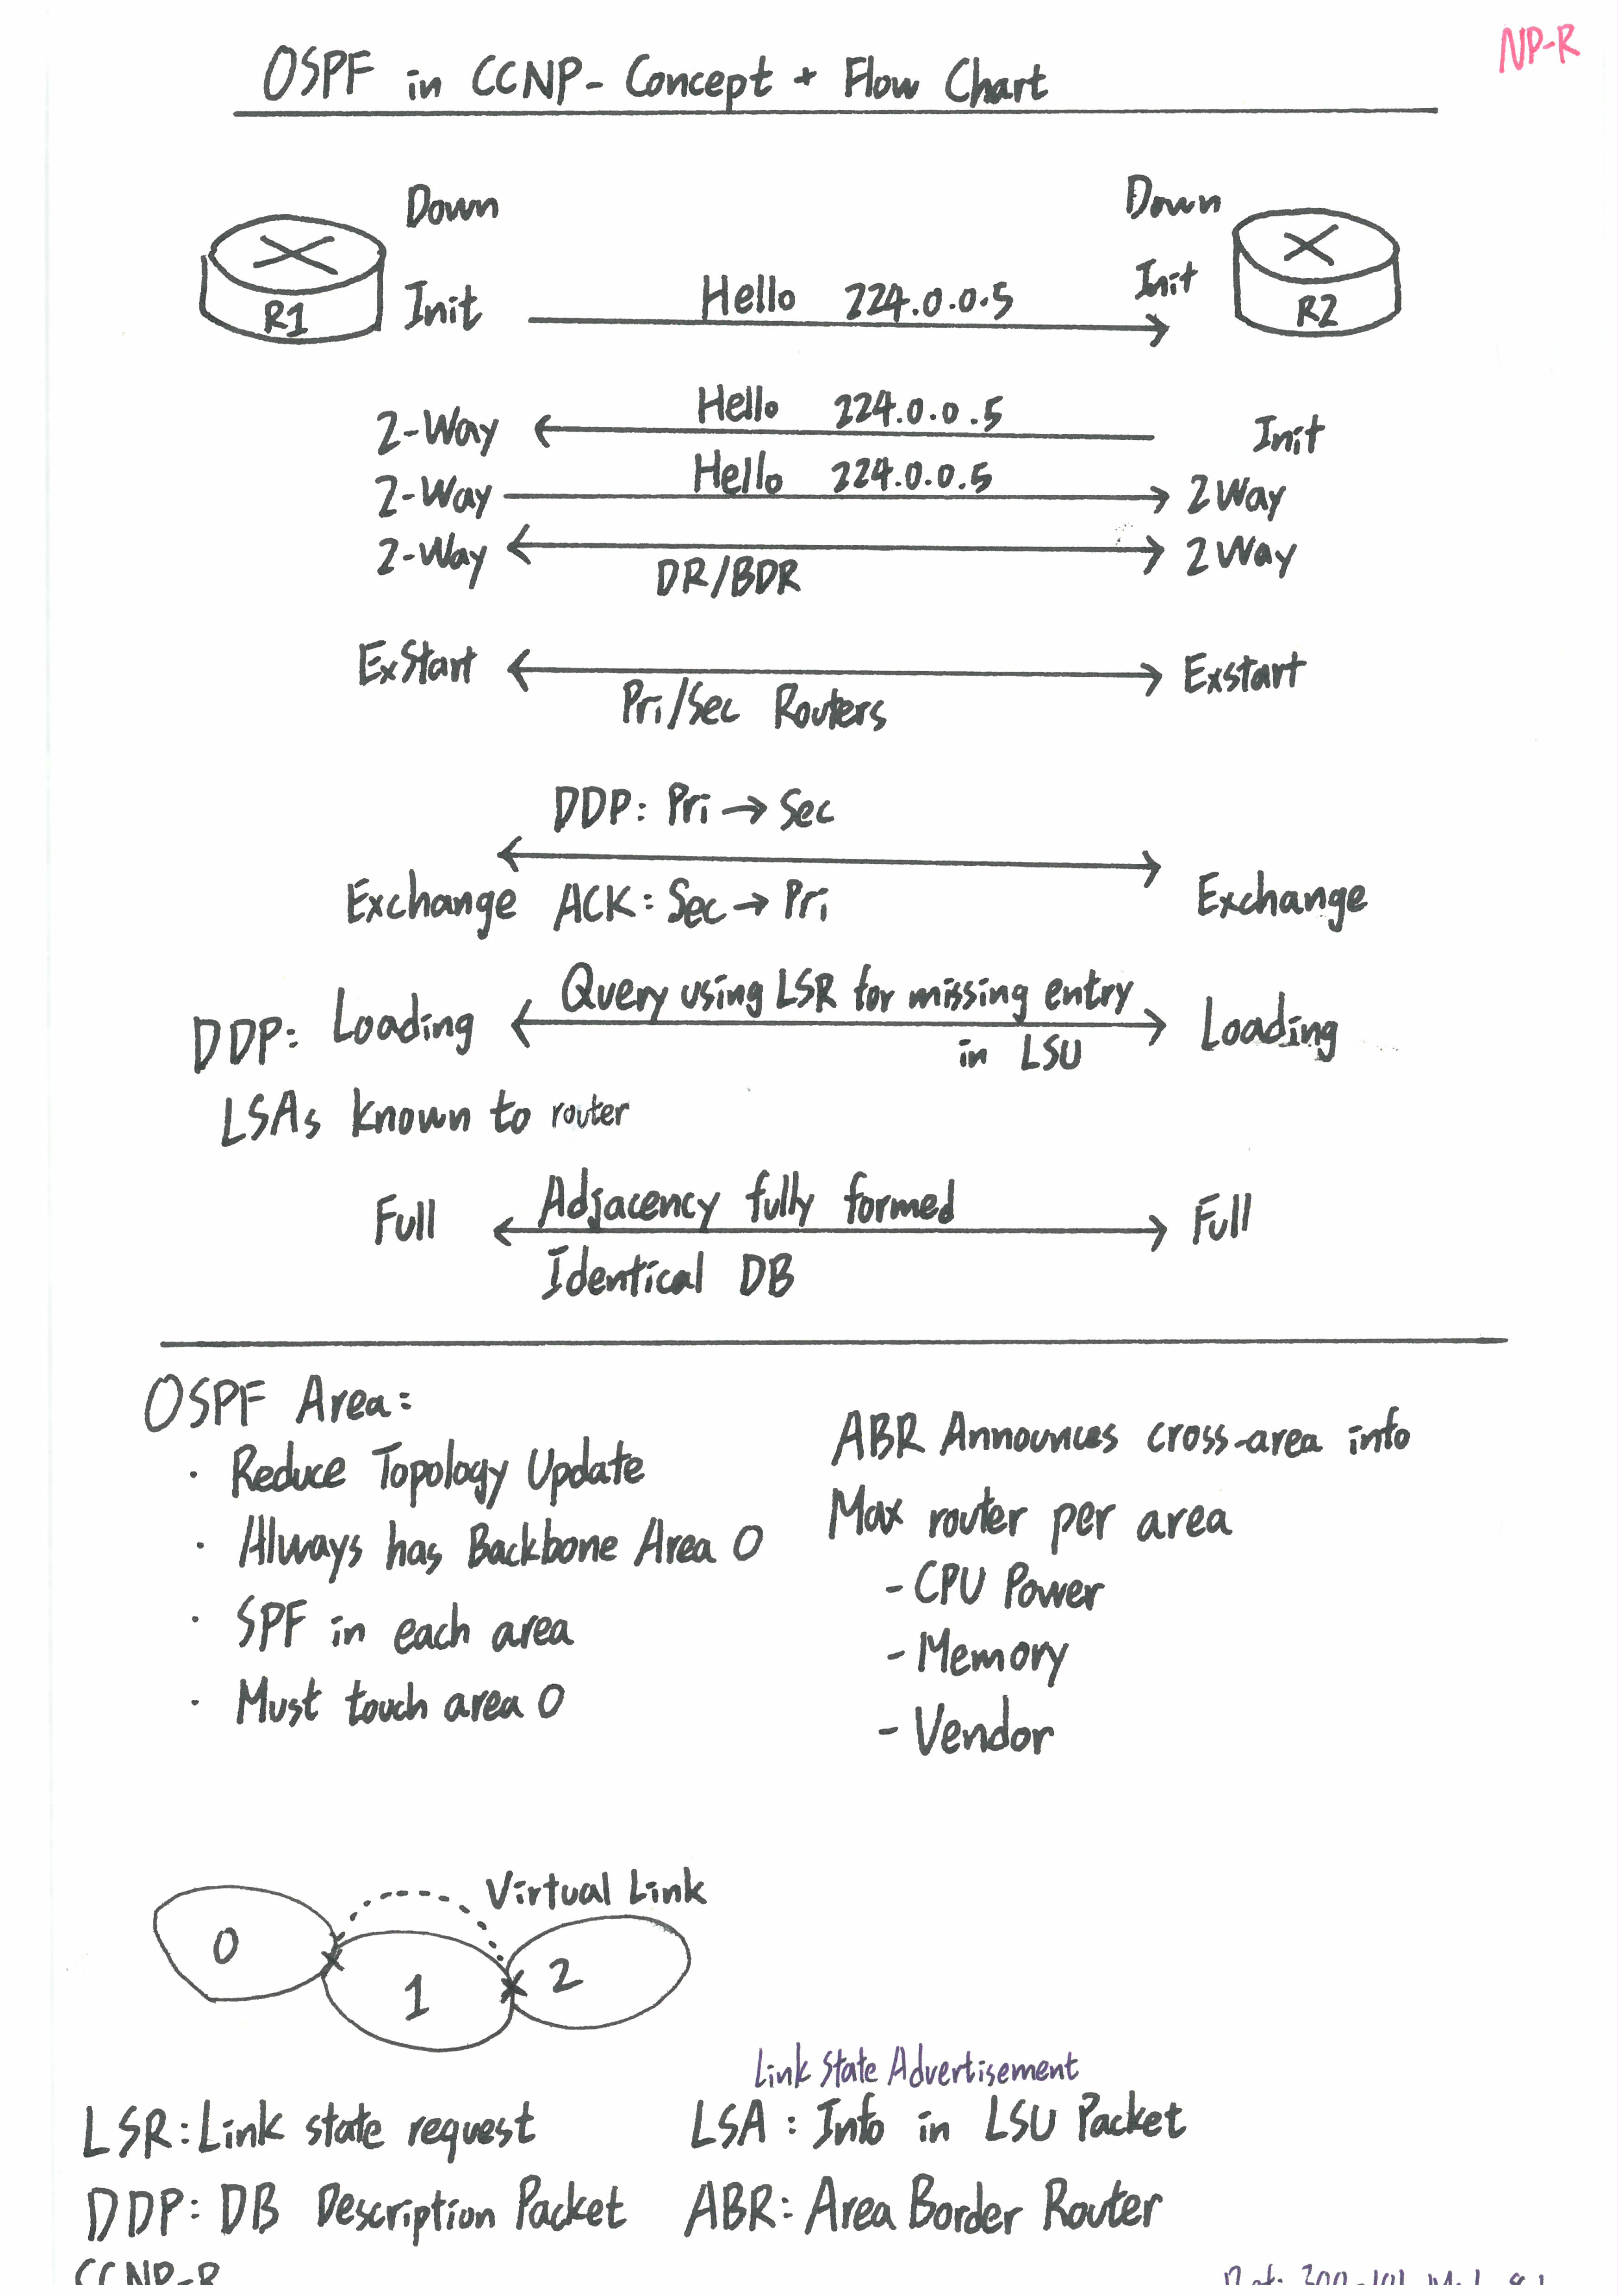 NP-R
OSPF in CCNP - Concept + Flow Chart
Down Down
R1 Init Hello 224.0.0.5 Init R2
2-Way Hello 224.0.0.5 Init
2-Way Hello 224.0.0.5 2Way
2-Way DR/BDR 2Way
ExStart Exstart
Pri/Sec Routers
DDP: Pri → Sec
Exchange ACK: Sec → Pri Exchange
DDP: Loading Query using LSR for missing entry Loading
in LSU
LSAs known to router
Full Adjacency fully formed Full
Identical DB
OSPF Area:
· Reduce Topology Update
· Always has Backbone Area 0
· SPF in each area
· Must touch area 0
ABR Announces cross-area info
Max router per area
- CPU Power
- Memory
- Vendor
Virtual Link
0 1 2
Link State Advertisement
LSR: Link state request LSA: Info in LSU Packet
DDP: DB Description Packet ABR: Area Border Router
CCNP-R